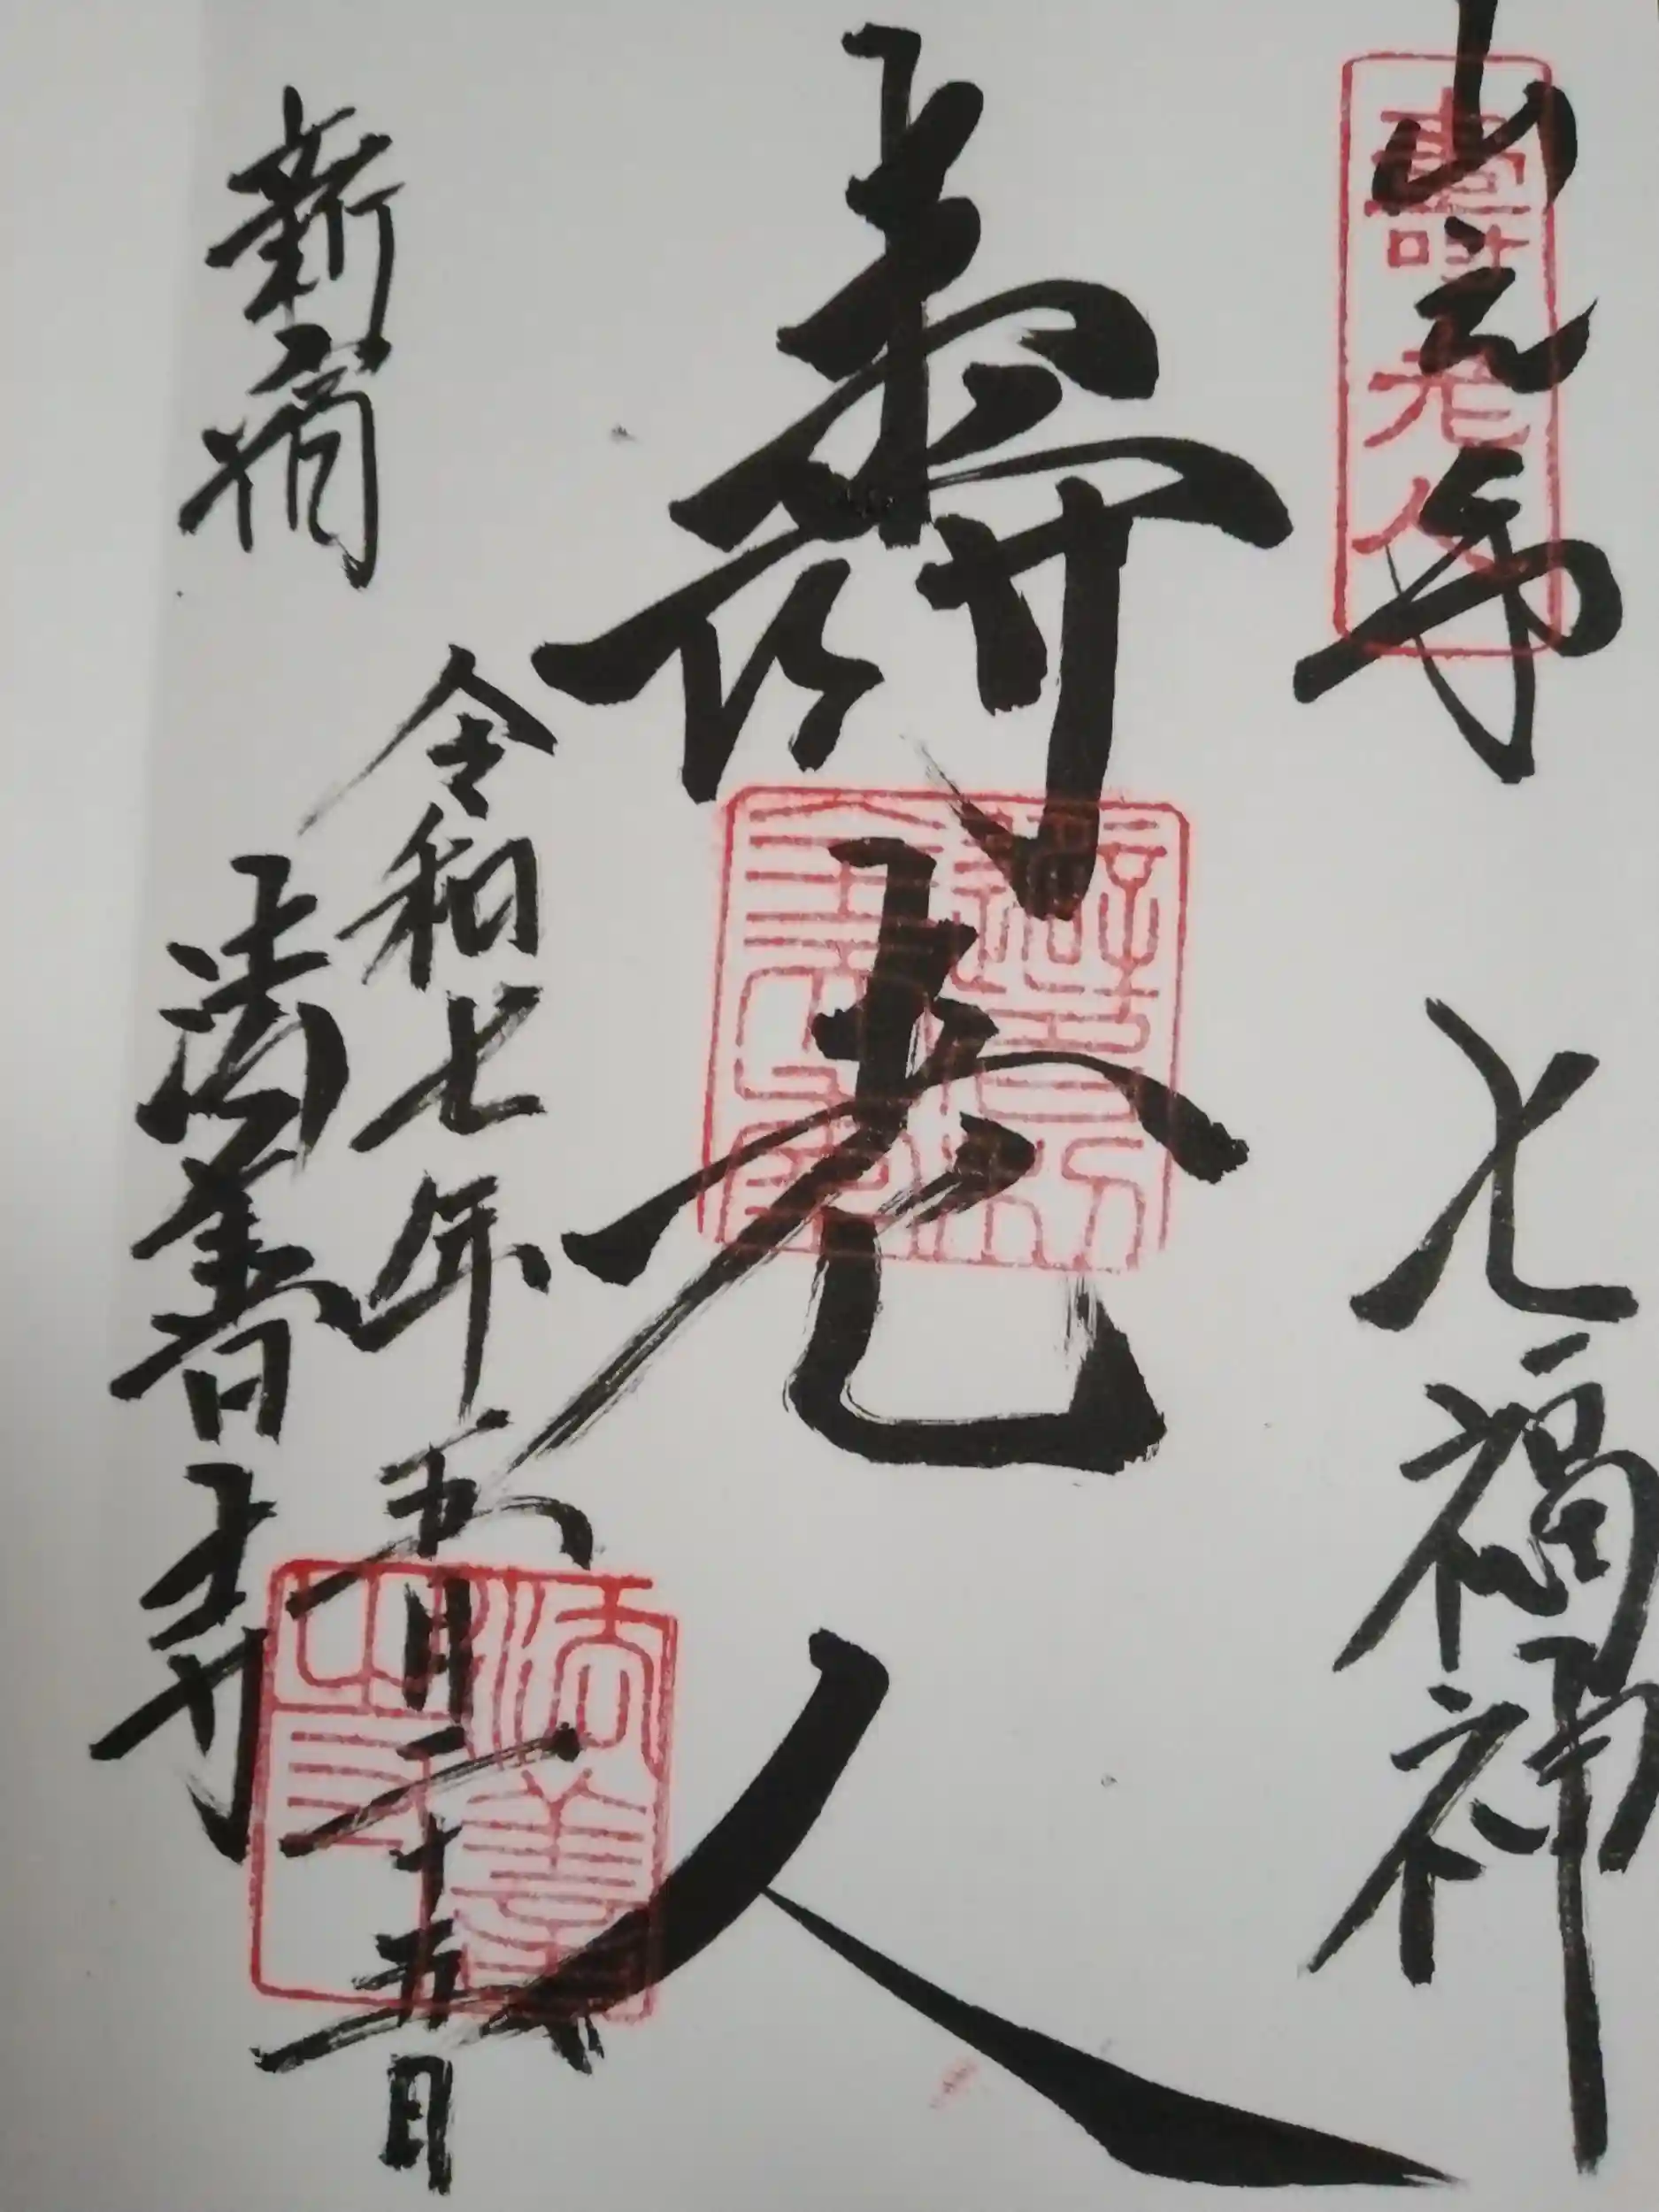 山之手 七福神
壽老人
壽老人
令和七年五月二十五日
新宿 法善寺
法善寺印